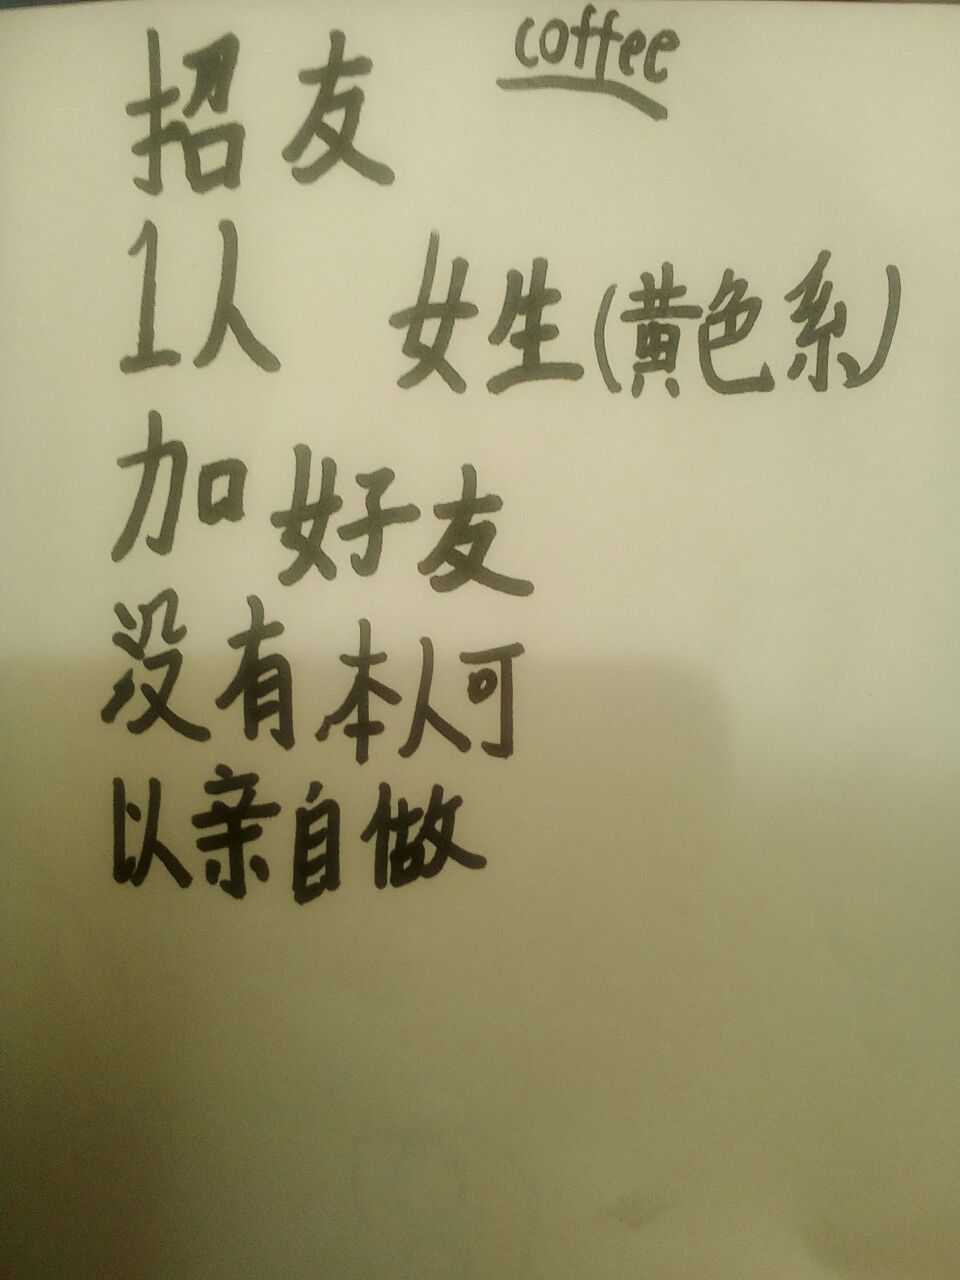 coffee
招友
1人 女生(黄色系)
加好友
没有本人可
以亲自做